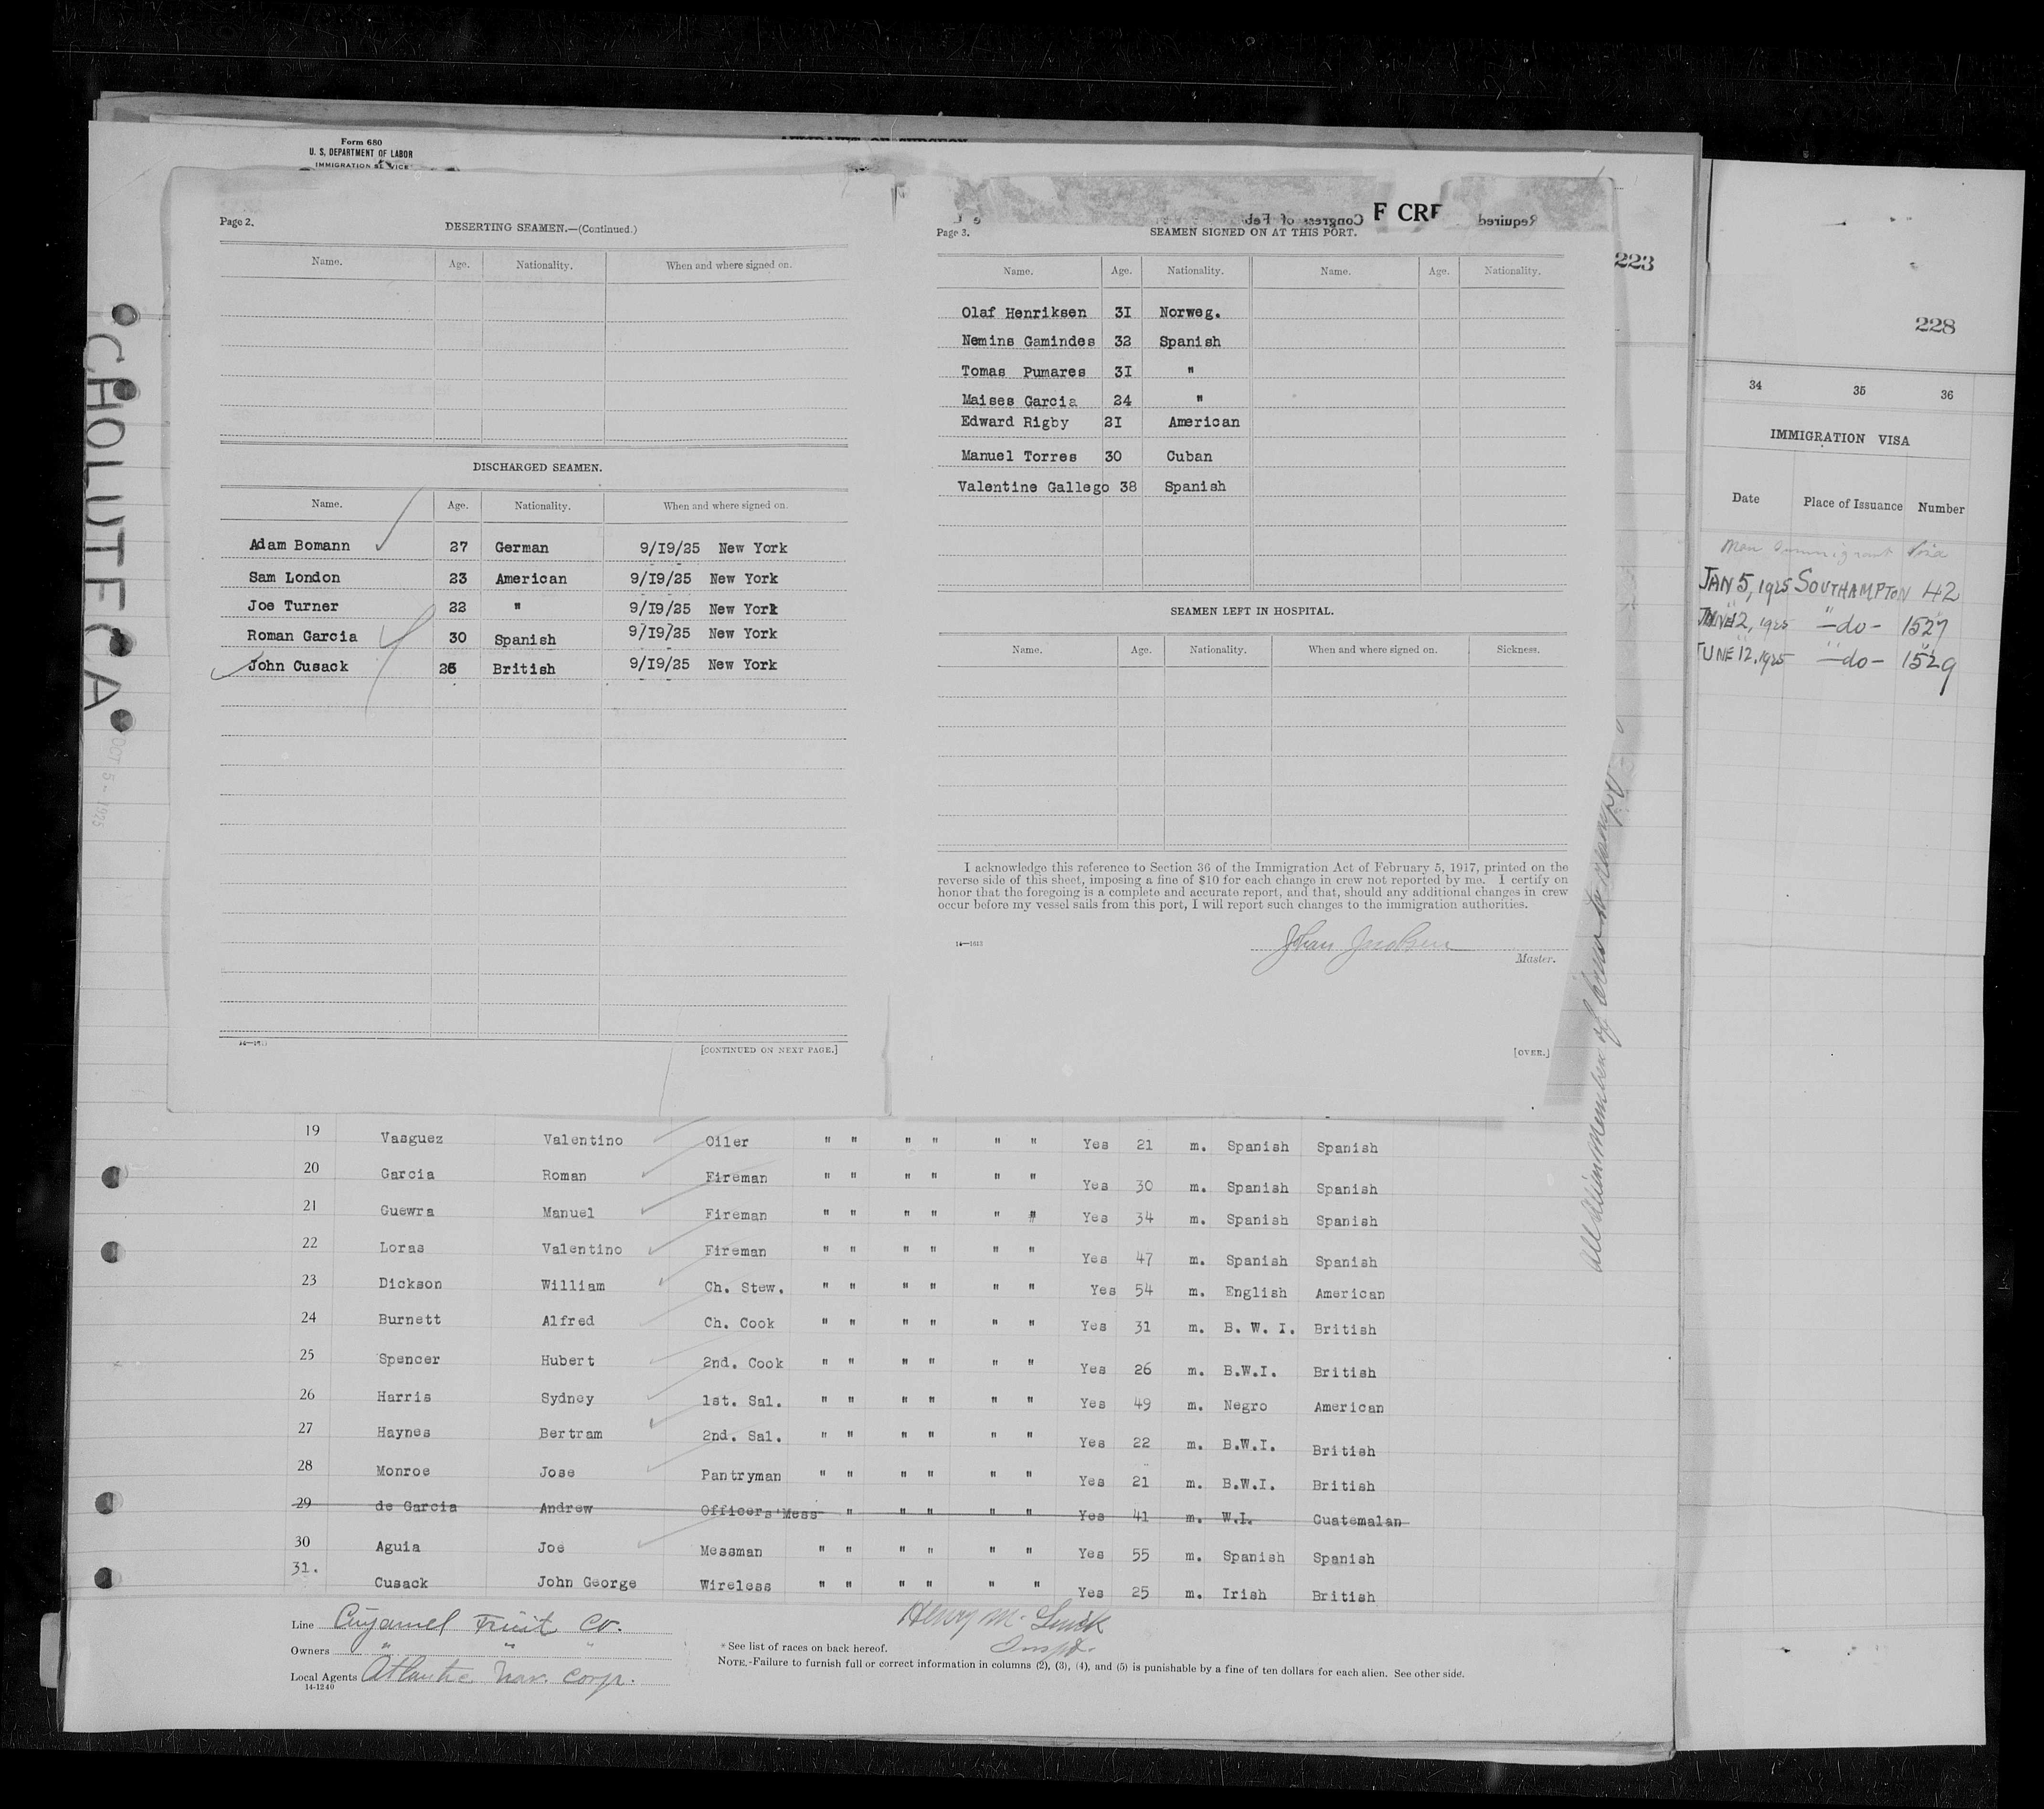 Form 680
U. S. DEPARTMENT OF LABOR
IMMIGRATION SERVICE
CHOLUTECA
OCT 5 - 1925
Page 2.
DESERTING SEAMEN.—(Continued.)
Name. Age. Nationality. When and where signed on.
DISCHARGED SEAMEN.
Name. Age. Nationality. When and where signed on.
Adam Bomann 27 German 9/19/25 New York
Sam London 23 American 9/19/25 New York
Joe Turner 22 " 9/19/25 New York
Roman Garcia 30 Spanish 9/19/25 New York
John Cusack 25 British 9/19/25 New York
14—1613
[CONTINUED ON NEXT PAGE.]
F CRE
Required
Congress of Feb
Page 3.
SEAMEN SIGNED ON AT THIS PORT.
Name. Age. Nationality. Name. Age. Nationality.
Olaf Henriksen 31 Norweg.
Nemins Gamindes 32 Spanish
Tomas Pumares 31 "
Maises Garcia 24 "
Edward Rigby 21 American
Manuel Torres 30 Cuban
Valentine Gallego 38 Spanish
SEAMEN LEFT IN HOSPITAL.
Name. Age. Nationality. When and where signed on. Sickness.
I acknowledge this reference to Section 36 of the Immigration Act of February 5, 1917, printed on the
reverse side of this sheet, imposing a fine of $10 for each change in crew not reported by me. I certify on
honor that the foregoing is a complete and accurate report, and that, should any additional changes in crew
occur before my vessel sails from this port, I will report such changes to the immigration authorities.
14—1613
Johan Jacobsen
Master.
[OVER.]
223
228
34 35 36
IMMIGRATION VISA
Date Place of Issuance Number
Non Immigrant Visa
JAN 5, 1925 SOUTHAMPTON 42
JUNE 12, 1925 —do— 1527
JUNE 12, 1925 —do— 1529
All alien members of crew to
19 Vasguez Valentino Oiler " " " " " " Yes 21 m. Spanish Spanish
20 Garcia Roman Fireman " " " " " " Yes 30 m. Spanish Spanish
21 Guewra Manuel Fireman " " " " " " Yes 34 m. Spanish Spanish
22 Loras Valentino Fireman " " " " " " Yes 47 m. Spanish Spanish
23 Dickson William Ch. Stew. " " " " " " Yes 54 m. English American
24 Burnett Alfred Ch. Cook " " " " " " Yes 31 m. B. W. I. British
25 Spencer Hubert 2nd. Cook " " " " " " Yes 26 m. B.W.I. British
26 Harris Sydney 1st. Sal. " " " " " " Yes 49 m. Negro American
27 Haynes Bertram 2nd. Sal. " " " " " " Yes 22 m. B.W.I. British
28 Monroe Jose Pantryman " " " " " " Yes 21 m. B.W.I. British
29 de Garcia Andrew Officers'Mess " " " " " Yes 41 m. W.I. Guatemalan
30 Aguia Joe Messman " " " " " " Yes 55 m. Spanish Spanish
31. Cusack John George Wireless " " " " " " Yes 25 m. Irish British
Line Cuyamel Fruit Co.
Owners " " "
Local Agents Atlantic Nav. Corp.
14-1240
Henry M.
Inspt.
*See list of races on back hereof.
NOTE.-Failure to furnish full or correct information in columns (2), (3), (4), and (5) is punishable by a fine of ten dollars for each alien. See other side.